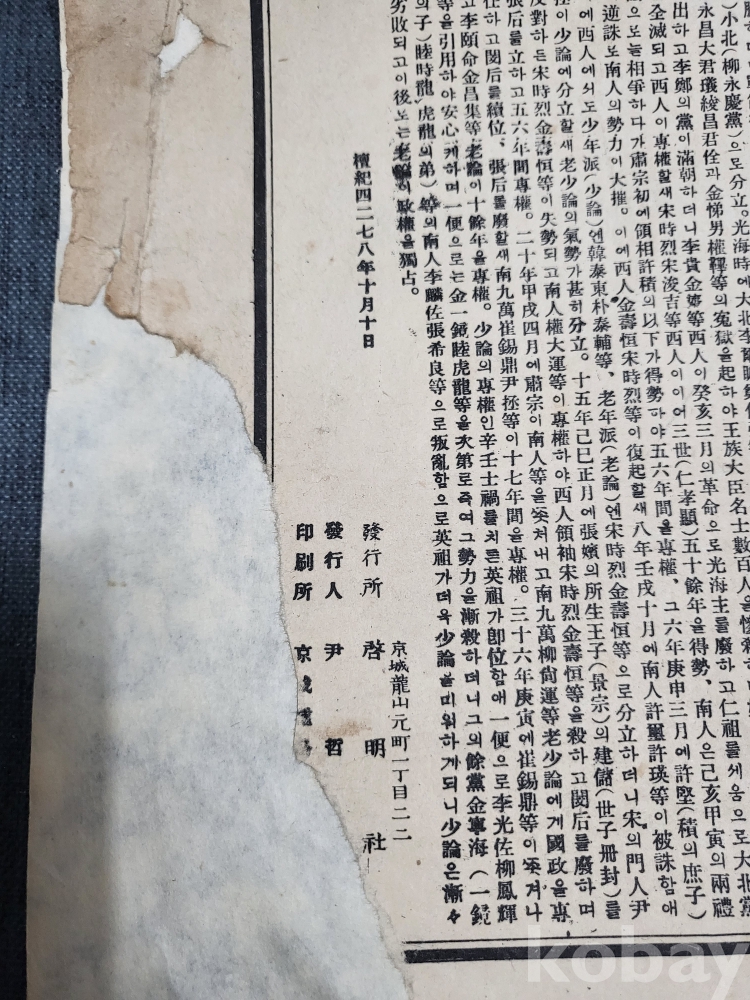 小北(柳永慶黨)으로分立。光海時에大北李爾瞻
永昌大君㼁綾昌君佺과金悌男權韠等의寃獄을起하야王族大臣名士數百人을
出하고李鄭의黨이滿朝하더니李貴金瑬等西人이癸亥三月의革命으로光海主를廢하고仁祖를세움으로大北黨
全滅되고西人이專權할새宋時烈宋浚吉等西人이이어三世(仁孝顯)五十餘年을得勢、南人은己亥甲寅의兩禮
으로늘相爭하다가肅宗初에領相許積의以下가得勢하야五六年間을專權、그六年庚申三月에許堅(積의庶子)
逆誅로南人의勢力이大摧。이에西人金壽恒宋時烈等이復起할새八年壬戌十月에南人許璽許瑛等이被誅함애
에西人에서도少年派(少論)엔韓泰東朴泰輔等、老年派(老論)엔宋時烈金壽恒等으로分立하더니宋의門人尹
이少論에分立할새老少論의氣勢가甚히分立。十五年己巳正月에張嬪의所生王子(景宗)의建儲(世子冊封)를
反對하든宋時烈金壽恒等이失勢되고南人權大運等이專權하야西人領袖宋時烈金壽恒等을殺하고閔后를廢하며
張后를立하고五六年間專權。二十年甲戌四月에肅宗이南人等을쫏처내고南九萬柳尙運等老少論에게國政을專
任하고閔后를續位、張后를廢할새南九萬崔錫鼎尹拯等이十七年間을專權。三十六年庚寅에崔錫鼎等이쫏겨나
고李頤命金昌集等老論이十餘年을專權。少論의專權인辛壬士禍를치른英祖가卽位함애一便으로李光佐柳鳳輝
等을引用하야安心케하며一便으로는金一鏡睦虎龍等을次第로죽여그勢力을漸殺하더니그의餘黨金寧海(一鏡
의子)睦時龍(虎龍의弟)等의南人李麟佐張希良等으로叛亂함으로英祖가더욱少論을미워하게되니少論은漸々
劣敗되고이後로는老論이政權을獨占。
檀紀四二七八年十月十日
京城龍山元町一丁目二二
發行所 啓明社
發行人 尹哲
印刷所 京
kobay